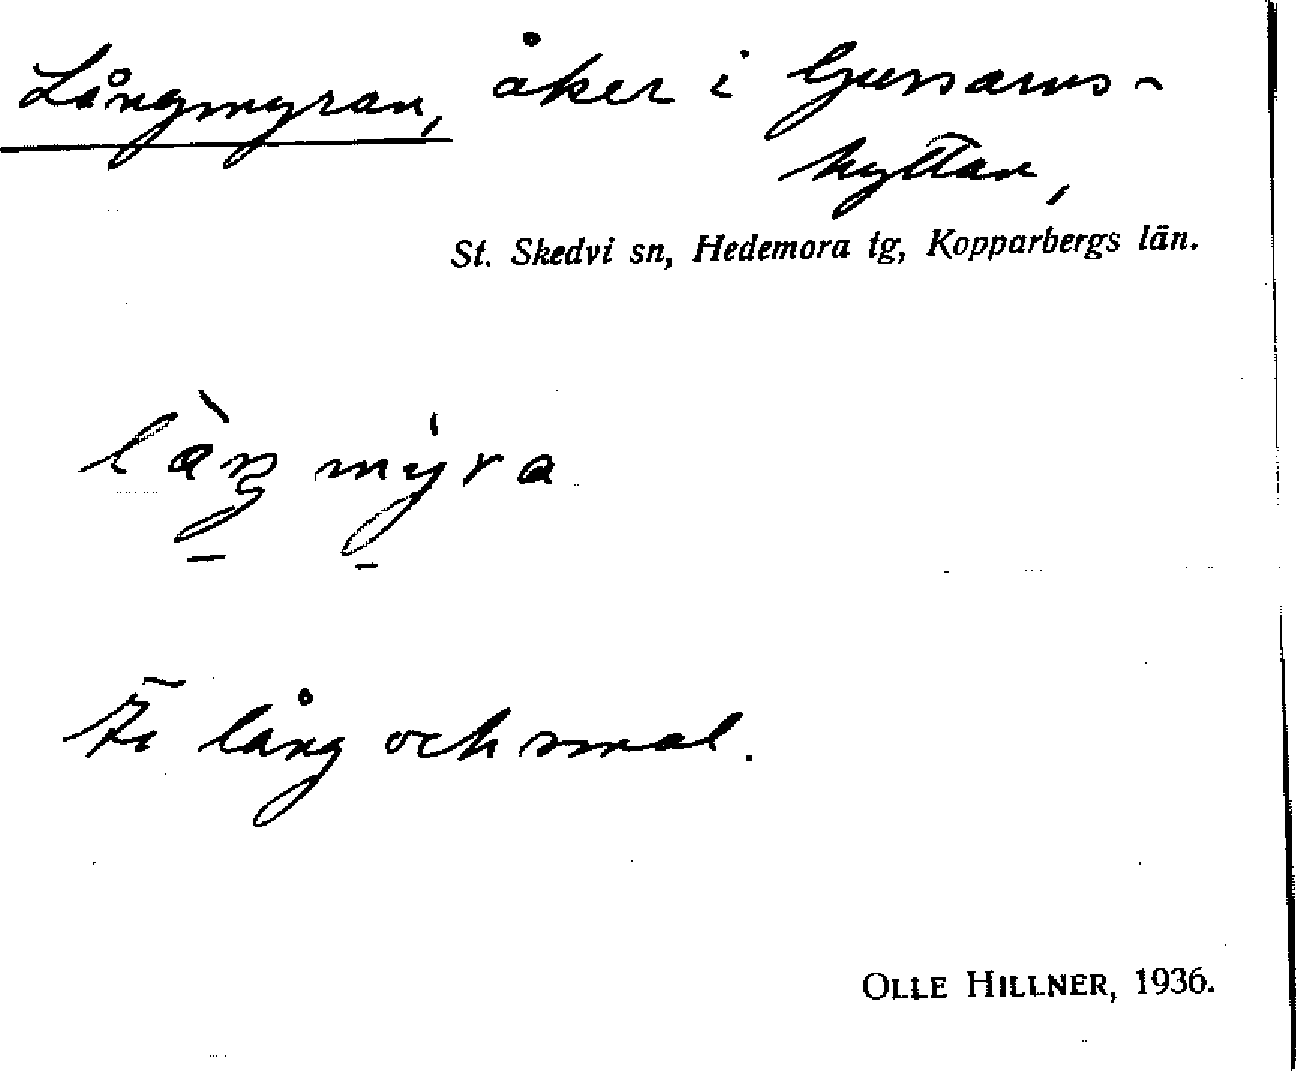 Långmyran, åker i Gussarvs-
hyttan,
St. Skedvi sn, Hedemora tg, Kopparbergs län.
làŋmy̍ra
Är lång och smal.
OLLE HILLNER, 1936.